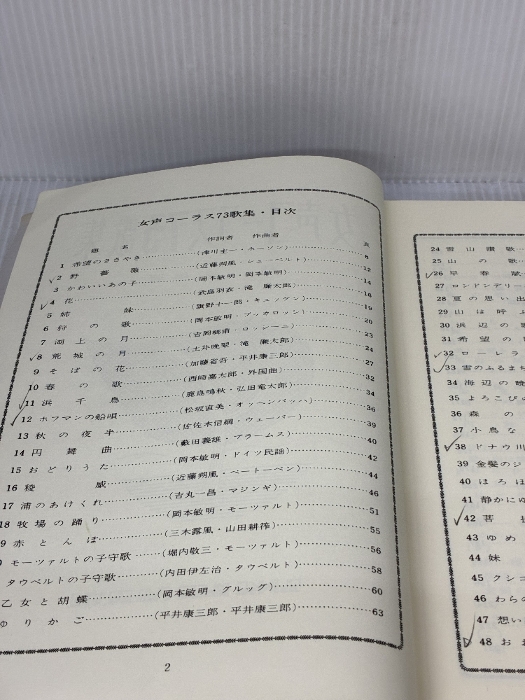 女声コーラス73歌集・目次
題 名 作詞者 作曲者 頁
1 希望のささやき (津川主一・ホーソン) 8
2 野薔薇 (近藤朔風・シューベルト) 12
3 かわいいあの子 (岡本敏明・岡本敏明) 14
4 花 (武島羽衣・滝廉太郎) 16
5 姉妹 (旗野十一郎・キュッケン) 18
6 狩の歌 19
7 湖上の月 20
8 荒城の月 (土井晩翠・滝廉太郎) 23
9 そばの花 (加藤省吾・平井康三郎) 24
10 春の歌 27
11 浜千鳥 (鹿島鳴秋・弘田竜太郎) 32
12 ホフマンの船唄 (松尾直美・オッヘンバッハ) 34
13 秋の夜半 (佐佐木信綱・ウェーバー) 36
14 円舞曲 (薮田義雄・ブラームス) 39
15 おどりうた (岡本敏明・ドイツ民謡) 40
16 稜威 (近藤朔風・ベートーベン) 42
17 浦のあけくれ (吉丸一昌・マジンギ) 44
18 牧場の踊り (岡本敏明・モーツァルト) 46
9 赤とんぼ (三木露風・山田耕筰) 51
モーツァルトの子守歌 (堀内敬三・モーツァルト) 55
タウベルトの子守歌 (内田伊左治・タウベルト) 56
乙女と胡蝶 (岡本敏明・グルック) 58
ゆりかご (平井康三郎・平井康三郎) 60
63
2
24 雪山讃歌
25 山の歌
26 早春賦
27 ロンドンデリー
28 夏の思い出
29 山は呼ぶ
30 浜辺の歌
31 希望の
32 ローレラ
33 雪のふるまち
34 海辺の
35 よろこびの
36 森の
37 小鳥な
38 ドナウ川
39 金髪のジ
40 ほろほ
41 静かにゆ
42 菩提
43 ゆめ
44 妹
45 クシコ
46 わらの
47 想い
48 おお